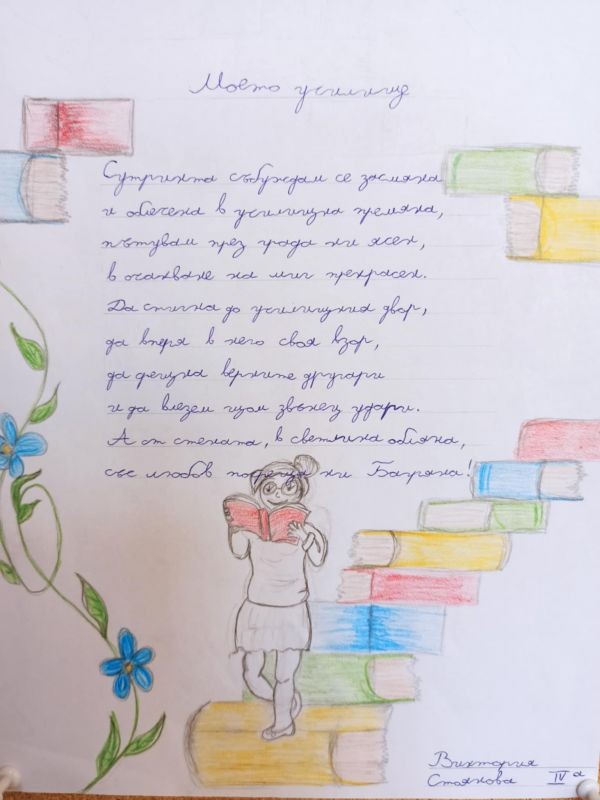 Моето училище
Сутринта събуждам се засмяна
и облечена в училищна премяна,
пътувам през града ни ясен,
в очакване на миг прекрасен.
Да стигна до училищния двор,
да вперя в него своя взор,
да срещна верните другари
и да влезем щом звънец удари.
А от стената, в светлина обляна,
със любов посреща ни Багряна!
Виктория
Стоянова IV а